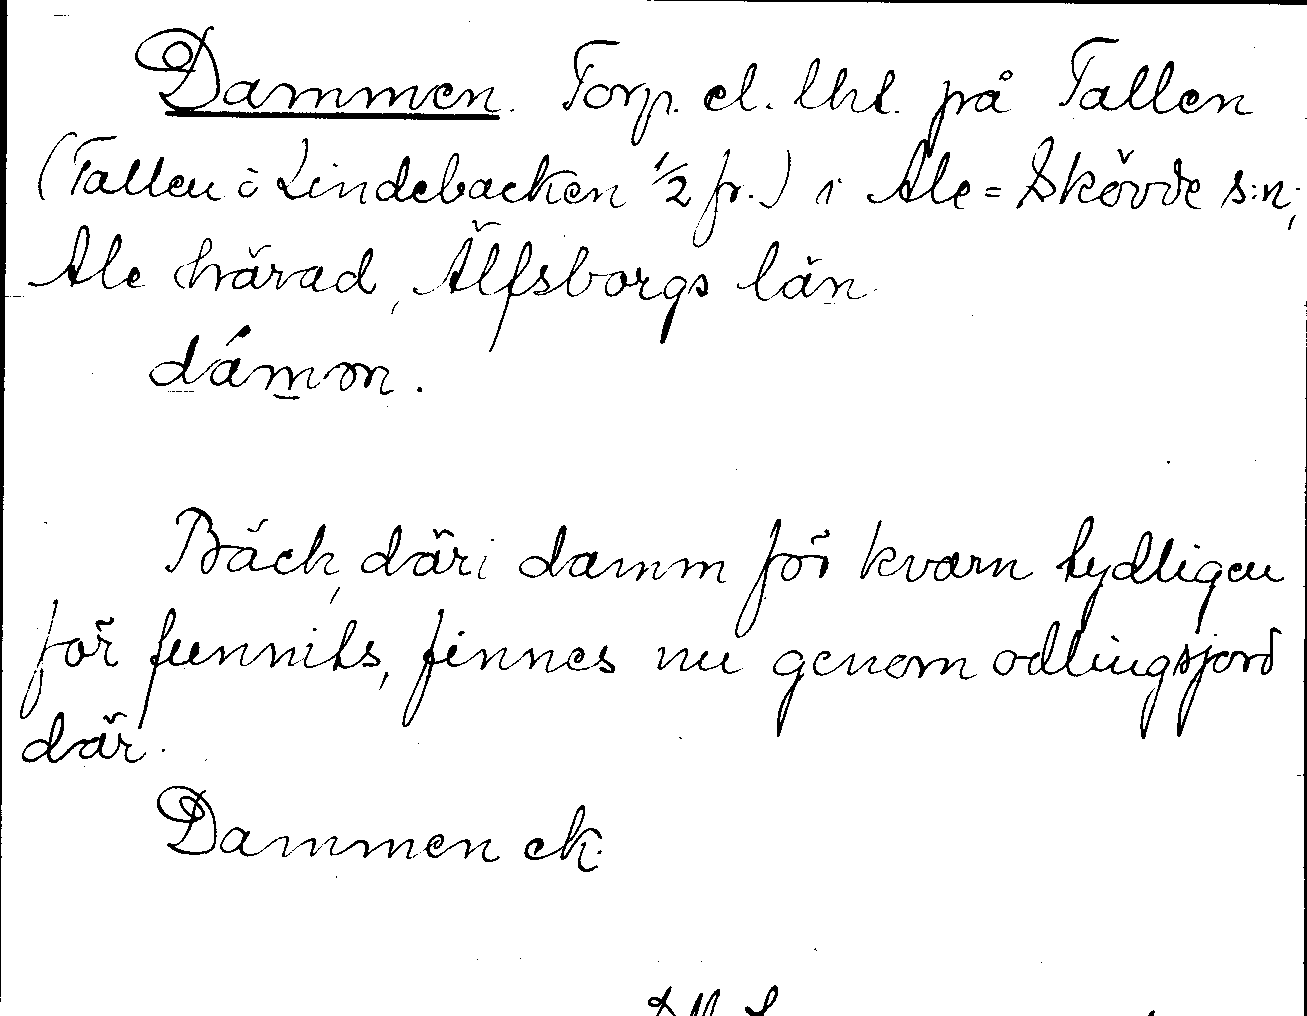 Dammen. Torp. el. lht. på Tallen
(Tallen o Lindebacken 1/2 fr.) i Ale=Skövde s:n;
Ale härad, Älfsborgs län
dámm.
Bäck, däri damm för kvarn tydligen
för funnits, finnes nu genom odlingsjord
där.
Dammen ek.